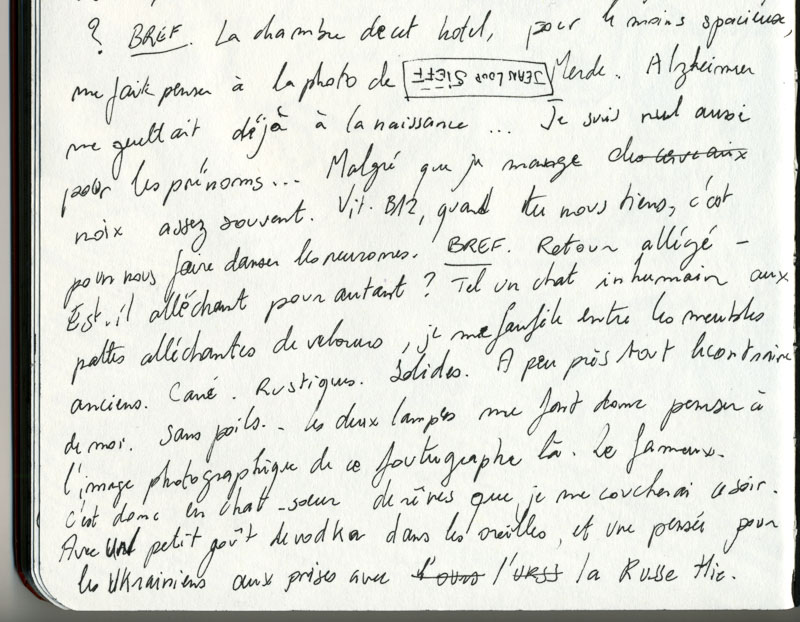 ? BREF. La chambre de cet hotel, pour le moins spacieux,
me fait penser à la photo de JEAN LOUP SIEFF Merde. Alzheimer
me guettait déjà à la naissance ... Je suis nul aussi
pour les prénoms... Malgré que je mange des cerveaux
noix assez souvent. Vit. B12, quand tu nous tiens, c'est
pour nous faire danser les neurones. BREF. Retour allégé -
Est-il alléchant pour autant ? Tel un chat inhumain aux
pattes alléchantes de velours, je me faufile entre les meubles
anciens. Carré. Rustiques. Solides. A peu près tout le contraire
de moi. Sans poils. - Les deux lampes me font donc penser à
l'image photographique de ce foutugraphe là. Le fameux.
C'est donc en chat-sœur de rêves que je me coucherai ce soir.
Avec un petit goût de vodka dans les oreilles, et une pensée pour
les Ukrainiens aux prises avec l'ours l'URSS la Russe Hic.